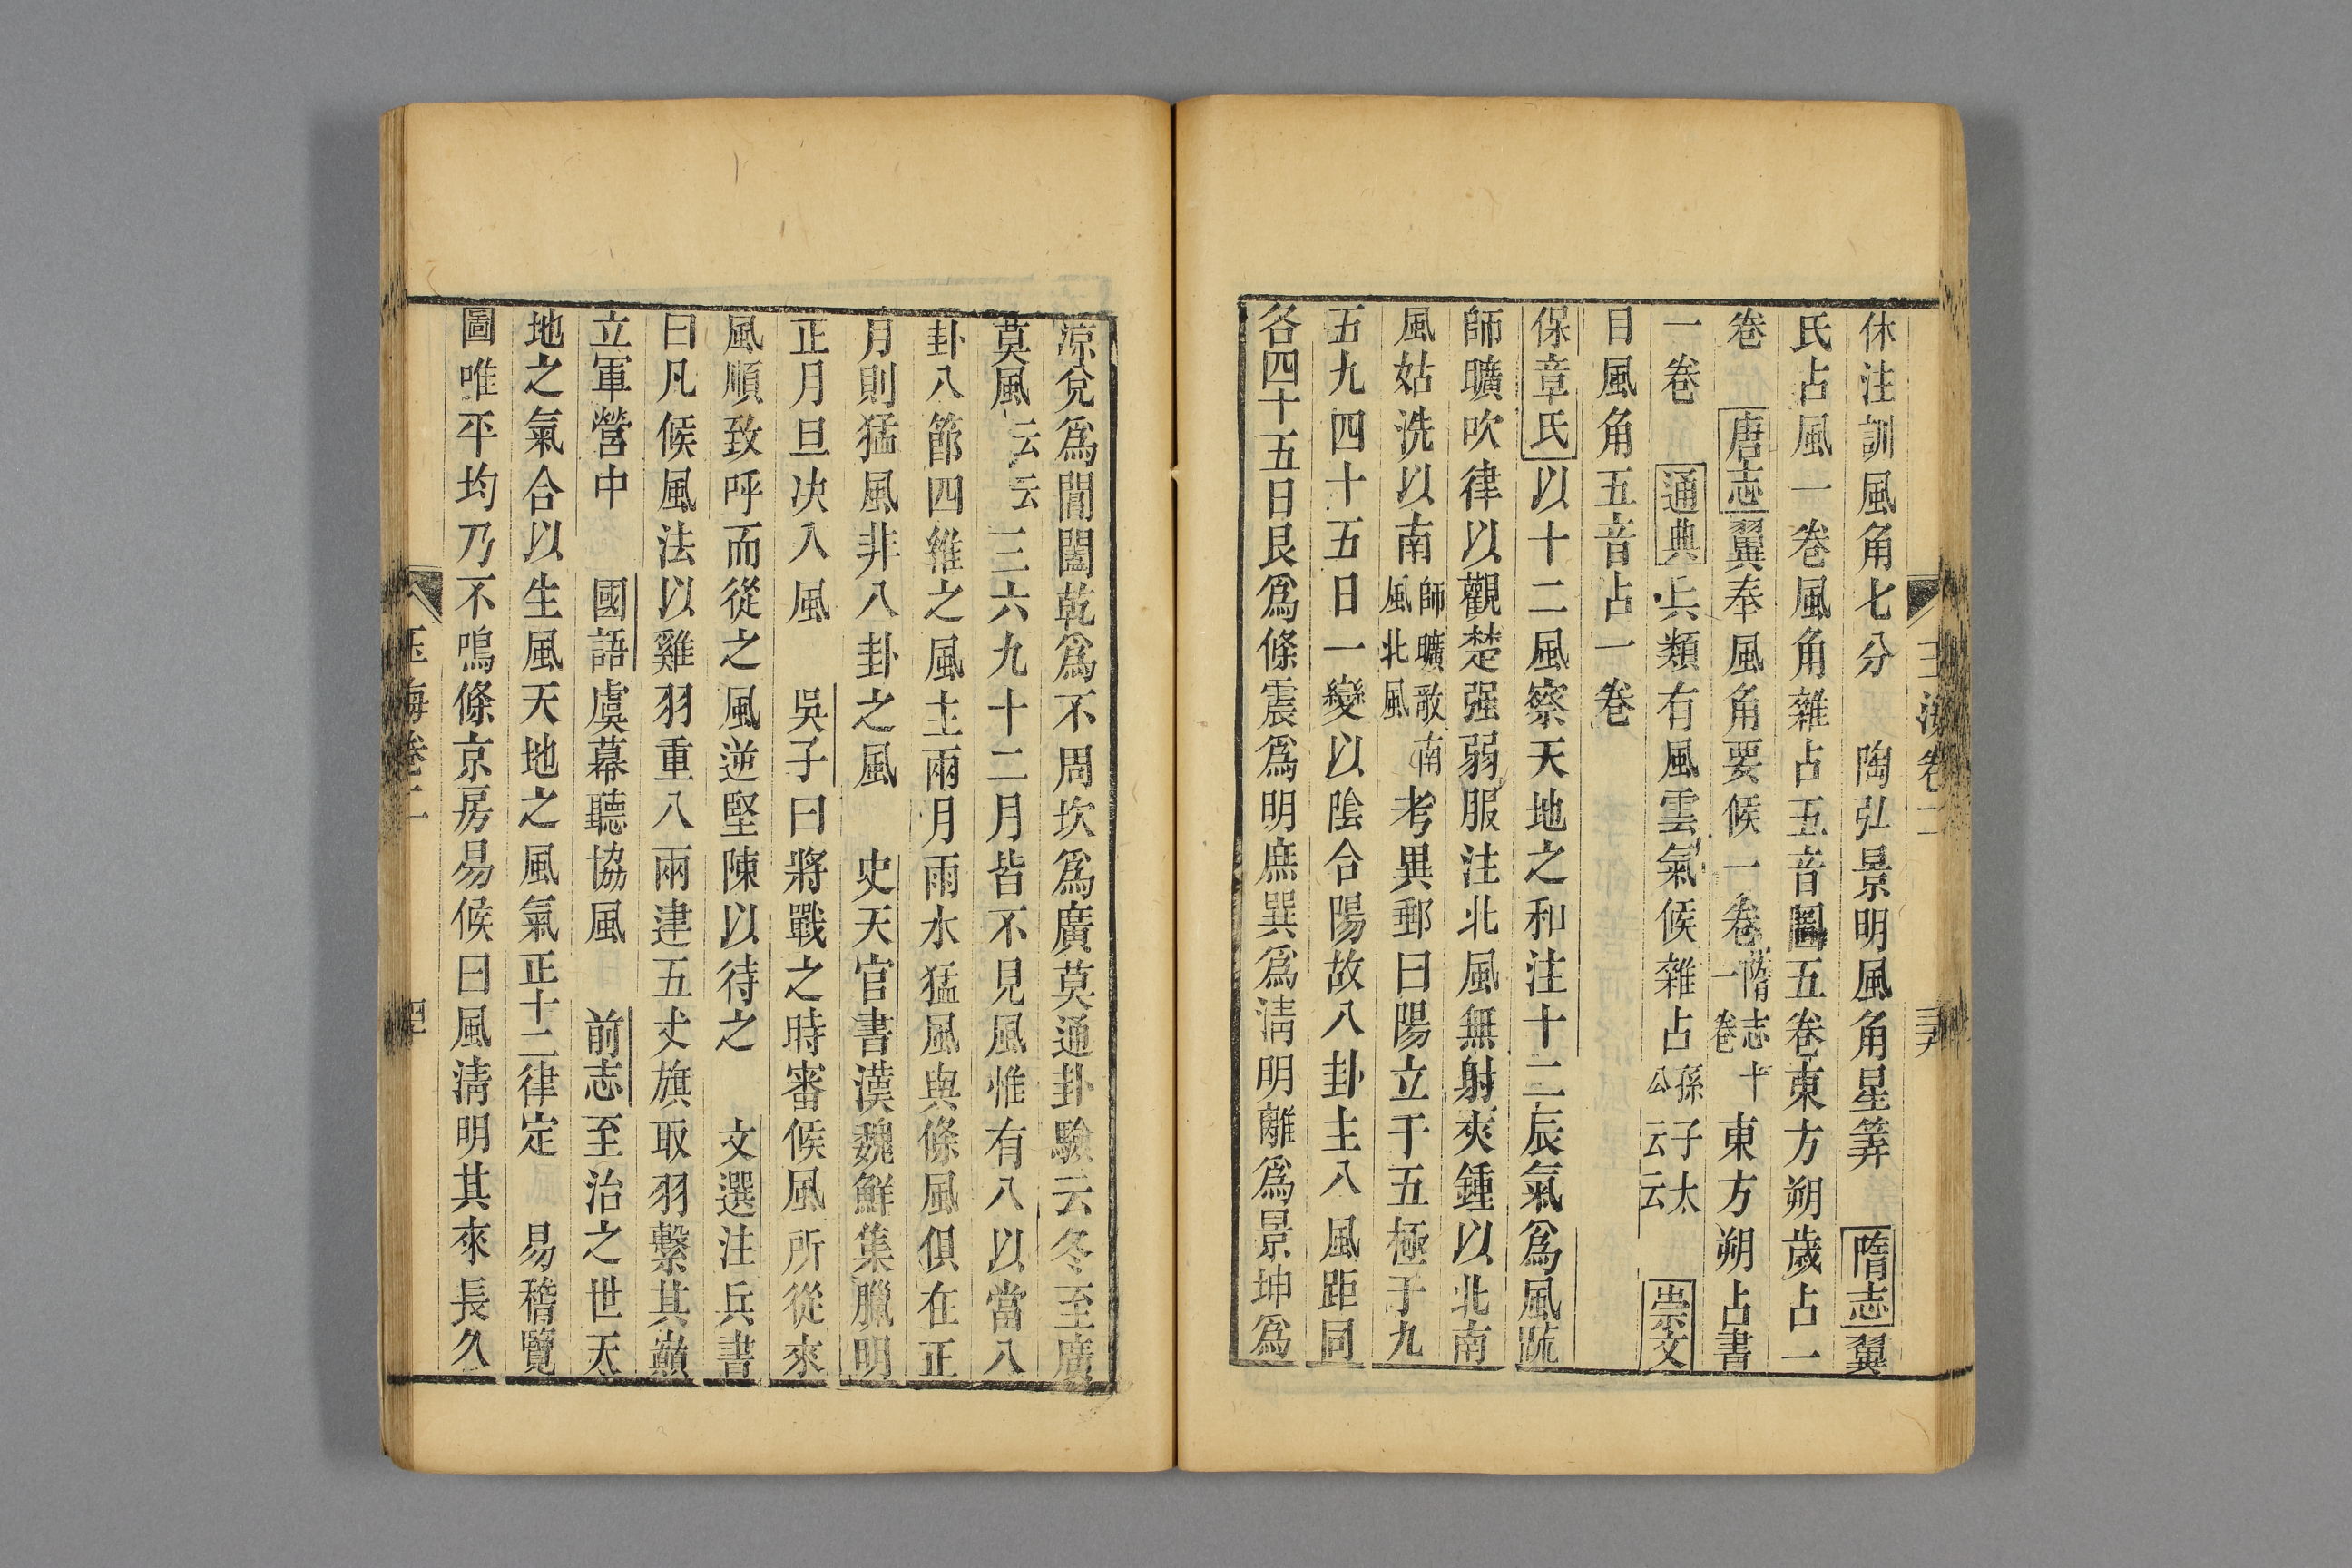 休注訓風角七分　陶弘景明風角星筭　隋志翼
氏占風一卷風角雜占五音圖五卷東方朔歲占一
卷　唐志翼奉風角要候一卷隋志十一卷東方朔占書
一卷　通典兵類有風雲氣候雜占孫子太公云云　崇文
目風角五音占一卷
保章氏以十二風察天地之和注十二辰氣爲風䟽
師曠吹律以觀楚强弱服注北風無射夾鍾以北南
風姑洗以南師曠歌南風北風考異郵曰陽立于五極于九
五九四十五日一變以陰合陽故八卦主八風距同
各四十五日艮爲條震爲明庶巽爲淸明離爲景坤爲
涼兌爲閶闔乾爲不周坎爲廣莫通卦驗云冬至廣
莫風云云三六九十二月皆不見風惟有八以當八
卦八節四維之風主兩月雨水猛風與條風俱在正
月則猛風非八卦之風　史天官書漢魏鮮集臘明
正月旦决八風　吳子曰將戰之時審候風所從來
風順致呼而從之風逆堅陳以待之　文選注兵書
曰凡候風法以雞羽重八兩建五丈旗取羽繫其巔
立軍營中　國語虞幕聽協風　前志至治之世天
地之氣合以生風天地之風氣正十二律定　易稽覽
圖唯平均乃不鳴條京房易候曰風淸明其來長久
玉海卷二